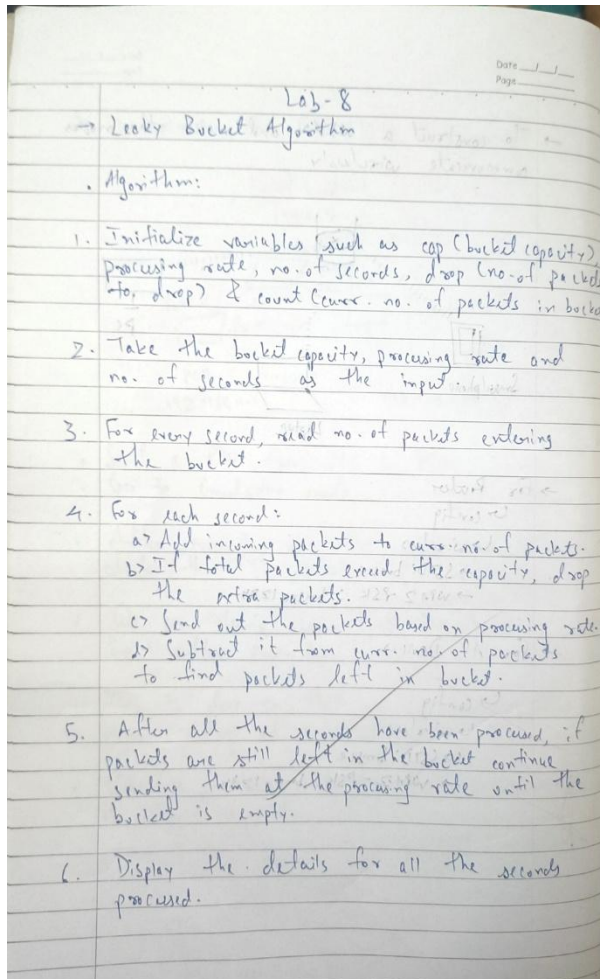 Date __/__/__
Page
Lab-8
→ Leaky Bucket Algorithm
. Algorithm:
1. Initialize variables such as cap (bucket capacity),
processing rate, no. of seconds, drop (no. of packets
to drop) & count (curr. no. of packets in bucke
2. Take the bucket capacity, processing rate and
no. of seconds as the input.
3. For every second, read no. of packets entering
the bucket.
4. For each second:
a> Add incoming packets to curr. no. of packets.
b> If total packets exceed the capacity, drop
the extra packets.
c> Send out the packets based on processing rate.
d> Subtract it from curr. no. of packets
to find packets left in bucket.
5. After all the seconds have been procused, if
packets are still left in the bucket continue
sending them at the processing rate until the
bucket is empty.
6. Display the details for all the seconds
procused.